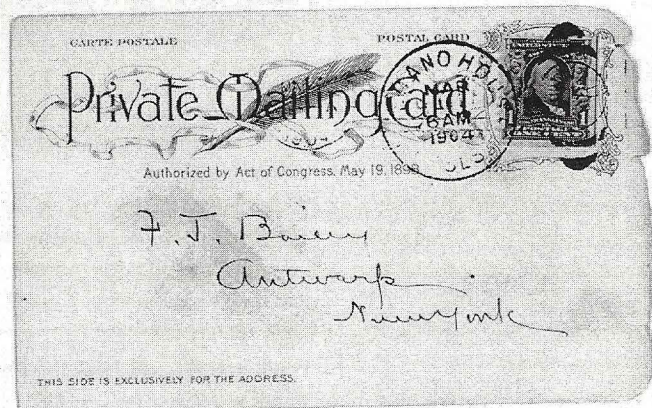 CARTE POSTALE
POSTAL CARD
Private Mailing Card
Authorized by Act of Congress, May 19, 1898
MAR
6 AM
1904
1
F. J.
Antwerp
New York
THIS SIDE IS EXCLUSIVELY FOR THE ADDRESS.